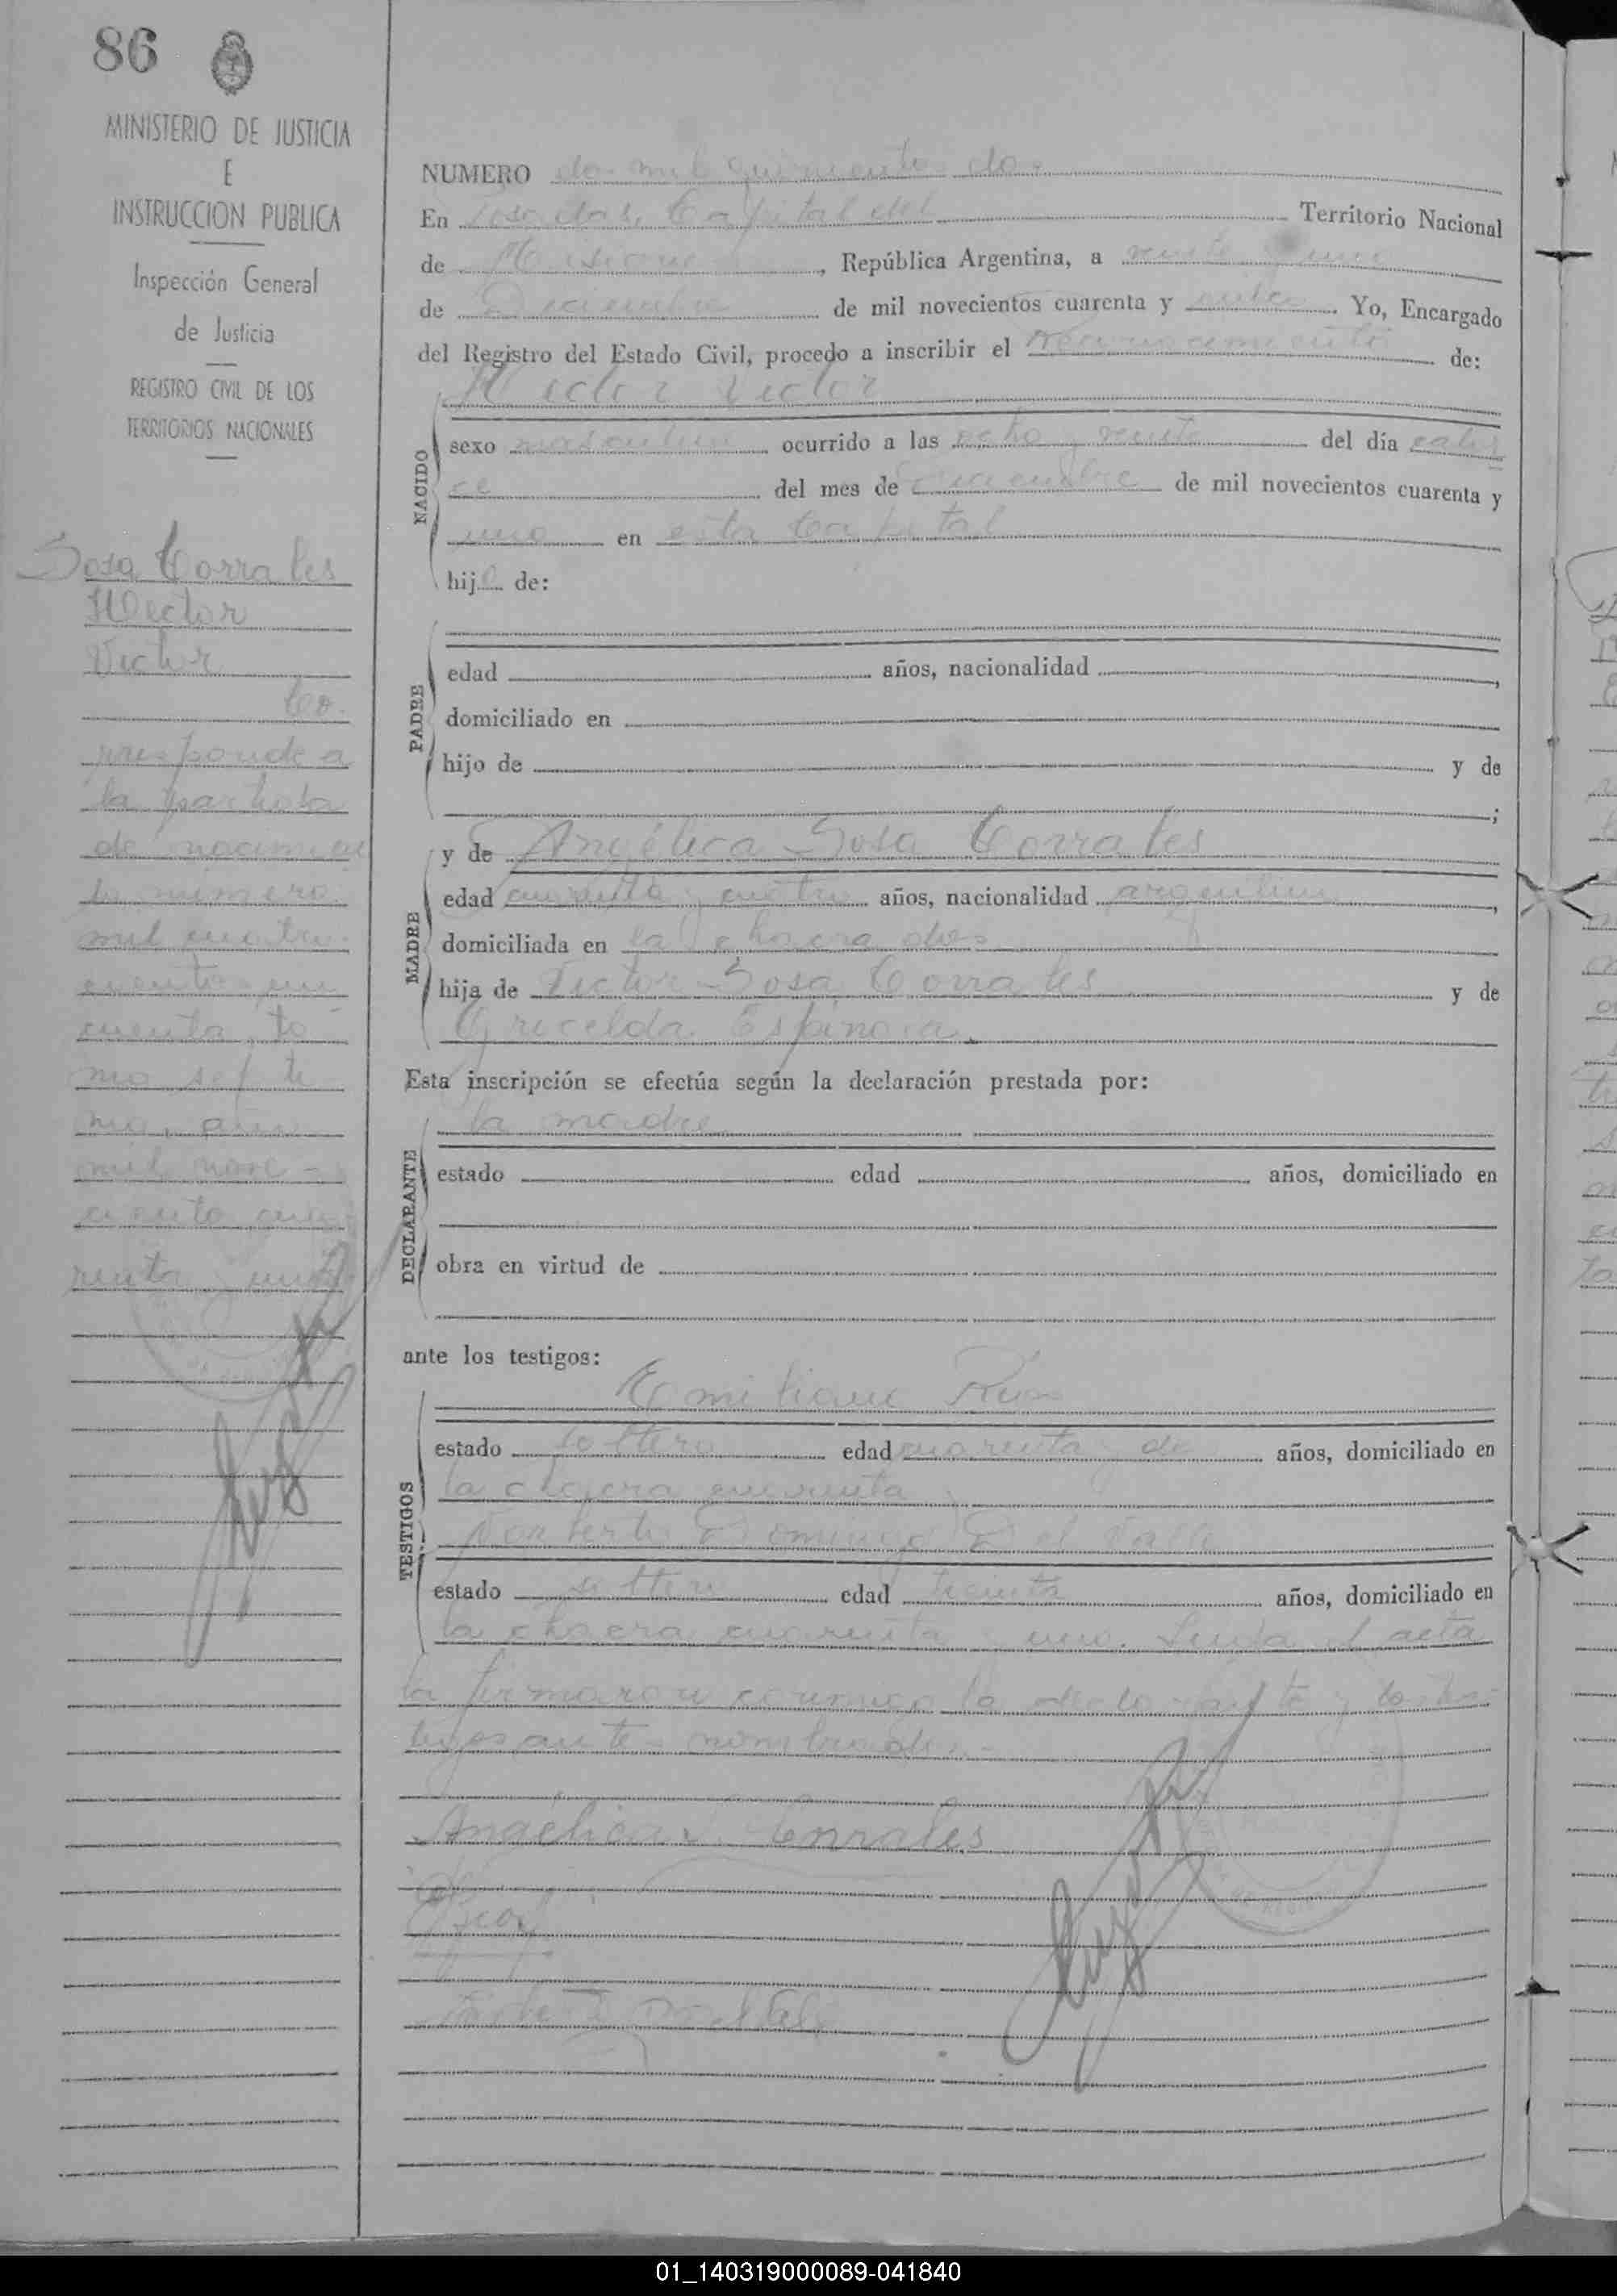 86
MINISTERIO DE JUSTICIA
E
INSTRUCCION PUBLICA
Inspección General
de Justicia
REGISTRO CIVIL DE LOS
TERRITORIOS NACIONALES
Sosa Corrales
Hector
Victor
Co-
rresponde a
la partida
de nacimien
to número
mil cuatro-
cientos cin
cuenta, to
mo septi
mo, año
mil nove-
cientos cua-
renta y uno
NUMERO dos mil quinientos dos
En Posadas, Capital del Territorio Nacional
de Misiones, República Argentina, a veinte y uno
de Diciembre de mil novecientos cuarenta y Yo, Encargado
del Registro del Estado Civil, procedo a inscribir el reconocimiento de:
Hector Victor
NACIDO
sexo masculino ocurrido a las ocho y veinte del día cator
ce del mes de de mil novecientos cuarenta y
uno en esta Capital
hijo de:
PADRE
edad años, nacionalidad ,
domiciliado en
hijo de y de
;
MADRE
y de Angélica Sosa Corrales
edad cuarenta y cuatro años, nacionalidad argentina,
domiciliada en la chacra dos
hija de Victor Sosa Corrales y de
Gricelda Espinosa.
Esta inscripción se efectúa según la declaración prestada por:
DECLARANTE
la madre
estado edad años, domiciliado en
obra en virtud de
ante los testigos:
TESTIGOS
Emiliano
estado soltero edad cuarenta y dos años, domiciliado en
la chacra cuarenta
Norberto Domingo Del Valle
estado soltero edad treinta años, domiciliado en
la chacra cuarenta y uno. Leida el acta
la firmaron conmigo la declarante y los tes-
tigos antes nombrados.-
Angélica S. Corrales
01_140319000089-041840